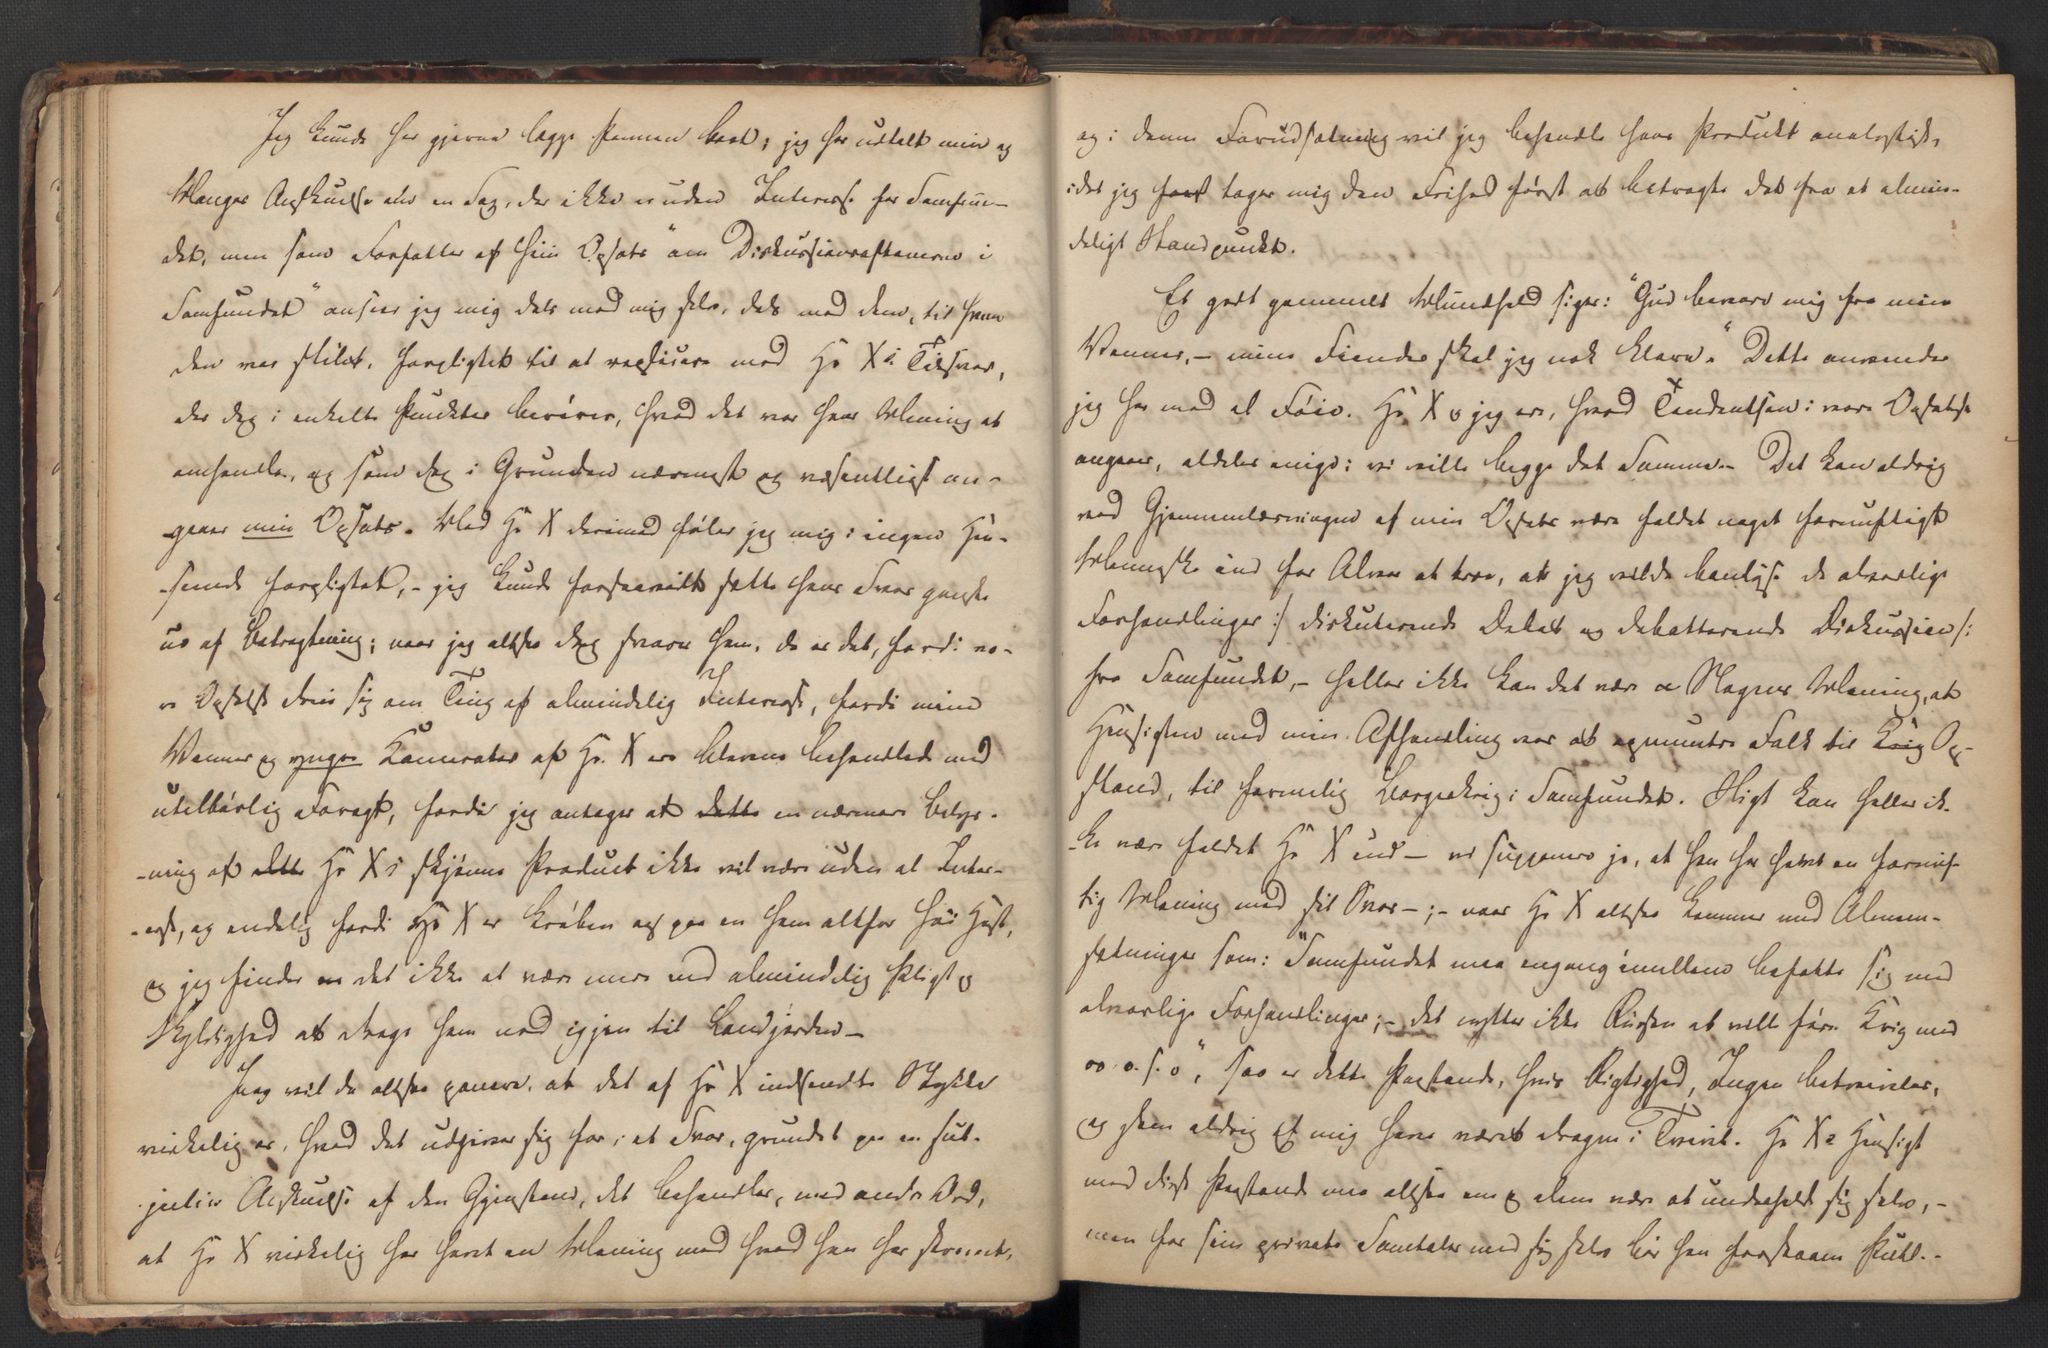 Jeg kunde her gjerne lægge Pennen bort; jeg har udtalt min og
Manges Anskuelse om en Sag, der ikke er uden Interesse for Samfun-
det, men som Forfatter af hiin Opsats "om Diskussionsaftenerne i
Samfundet" anseer jeg mig dels mod mig selv, dels mod dem, til hvem
den var stilet, forpligtet til at replicere mod Hr X's Tilsvar,
der dog i enkelte Punkter berører, hvad det var hans Mening at
omhandle, og som dog i Grunden nærmest og væsentligst an-
gaaer min Opsats. Mod Hr X derimod føler jeg mig i ingen Hen-
seende forpligtet, - jeg kunde forsaavidt sætte hans Svar ganske
ud af Betragtning; naar jeg altsaa dog svarer ham, da er det, fordi vo-
re Opsatse dreie sig om Ting af almindelig Interesse, fordi mine
Venner og yngre Kamerater af Hr. X ere blevne behandlede med
utilbørlig Foragt, fordi jeg antager at dette en nærmere Belys-
-ning af dette Hr X's skjønne Product ikke vil være uden al Inter-
-esse, og endelig fordi Hr X er krøben op paa en ham altfor høi Hest,
og jeg finder en det ikke at være mere end almindelig Pligt og
Skyldighed at drage ham ned igjen til Landjorden -
Jeg vil da altsaa ponere, at det af Hr X indsendte Stykke
virkelig er, hvad det udgiver sig for, et Svar, grundet paa en sub-
jectiv Anskuelse af den Gjenstand, det behandler, med andre Ord,
at Hr X virkelig har havt en Mening med hvad han har skrevet,
og i denne Forudsætning vil jeg behandle hans Produkt analytisk,
idet jeg først tager mig den Frihed først at betragte det fra et almin-
deligt Standpunkt.
Et godt gammelt Mundheld siger: "Gud bevare mig for mine
Venner, - mine Fiender skal jeg nok klare." Dette anvender
jeg her med al Føie. Hr X og jeg ere, hvad Tendentsen i vore Opsatse
angaaer, aldeles enige: vi ville begge det Samme. - Det kan aldrig
ved Gjennemlæsningen af min Opsats være faldet noget fornuftigt
Menneske ind for Alvor at troe, at jeg vilde banlyse de alvorlige
Forhandlinger :/ diskuterende Debat og debatterende Diskussion /:
fra Samfundet, - heller ikke kan det være Nogens Mening, at
Hensigten med min Afhandling var at opmuntre Folk til Krig Op-
stand, til formelig Borgerkrig i Samfundet. Sligt kan heller ik-
-ke være faldet Hr X ind - vi supponere jo, at han har havt en fornuf-
tig Mening med sit Svar -; - naar Hr X altsaa kommer med Almen-
sætninger som: "Samfundet maa engang imellem befatte sig med
alvorlige Forhandlinger; - det nytter ikke Russen at ville føre Krig med
oo. o. s. o", saa er dette Paastande, hvis Rigtighed, Ingen betvivler,
og som aldrig af mig have været dragne i Tvivl. Hr X's Hensigt
med disse Paastande maa altsaa ene og alene være at underholde sig selv, -
men for sine private Samtaler med sig selv bør han forskaane Publ.-